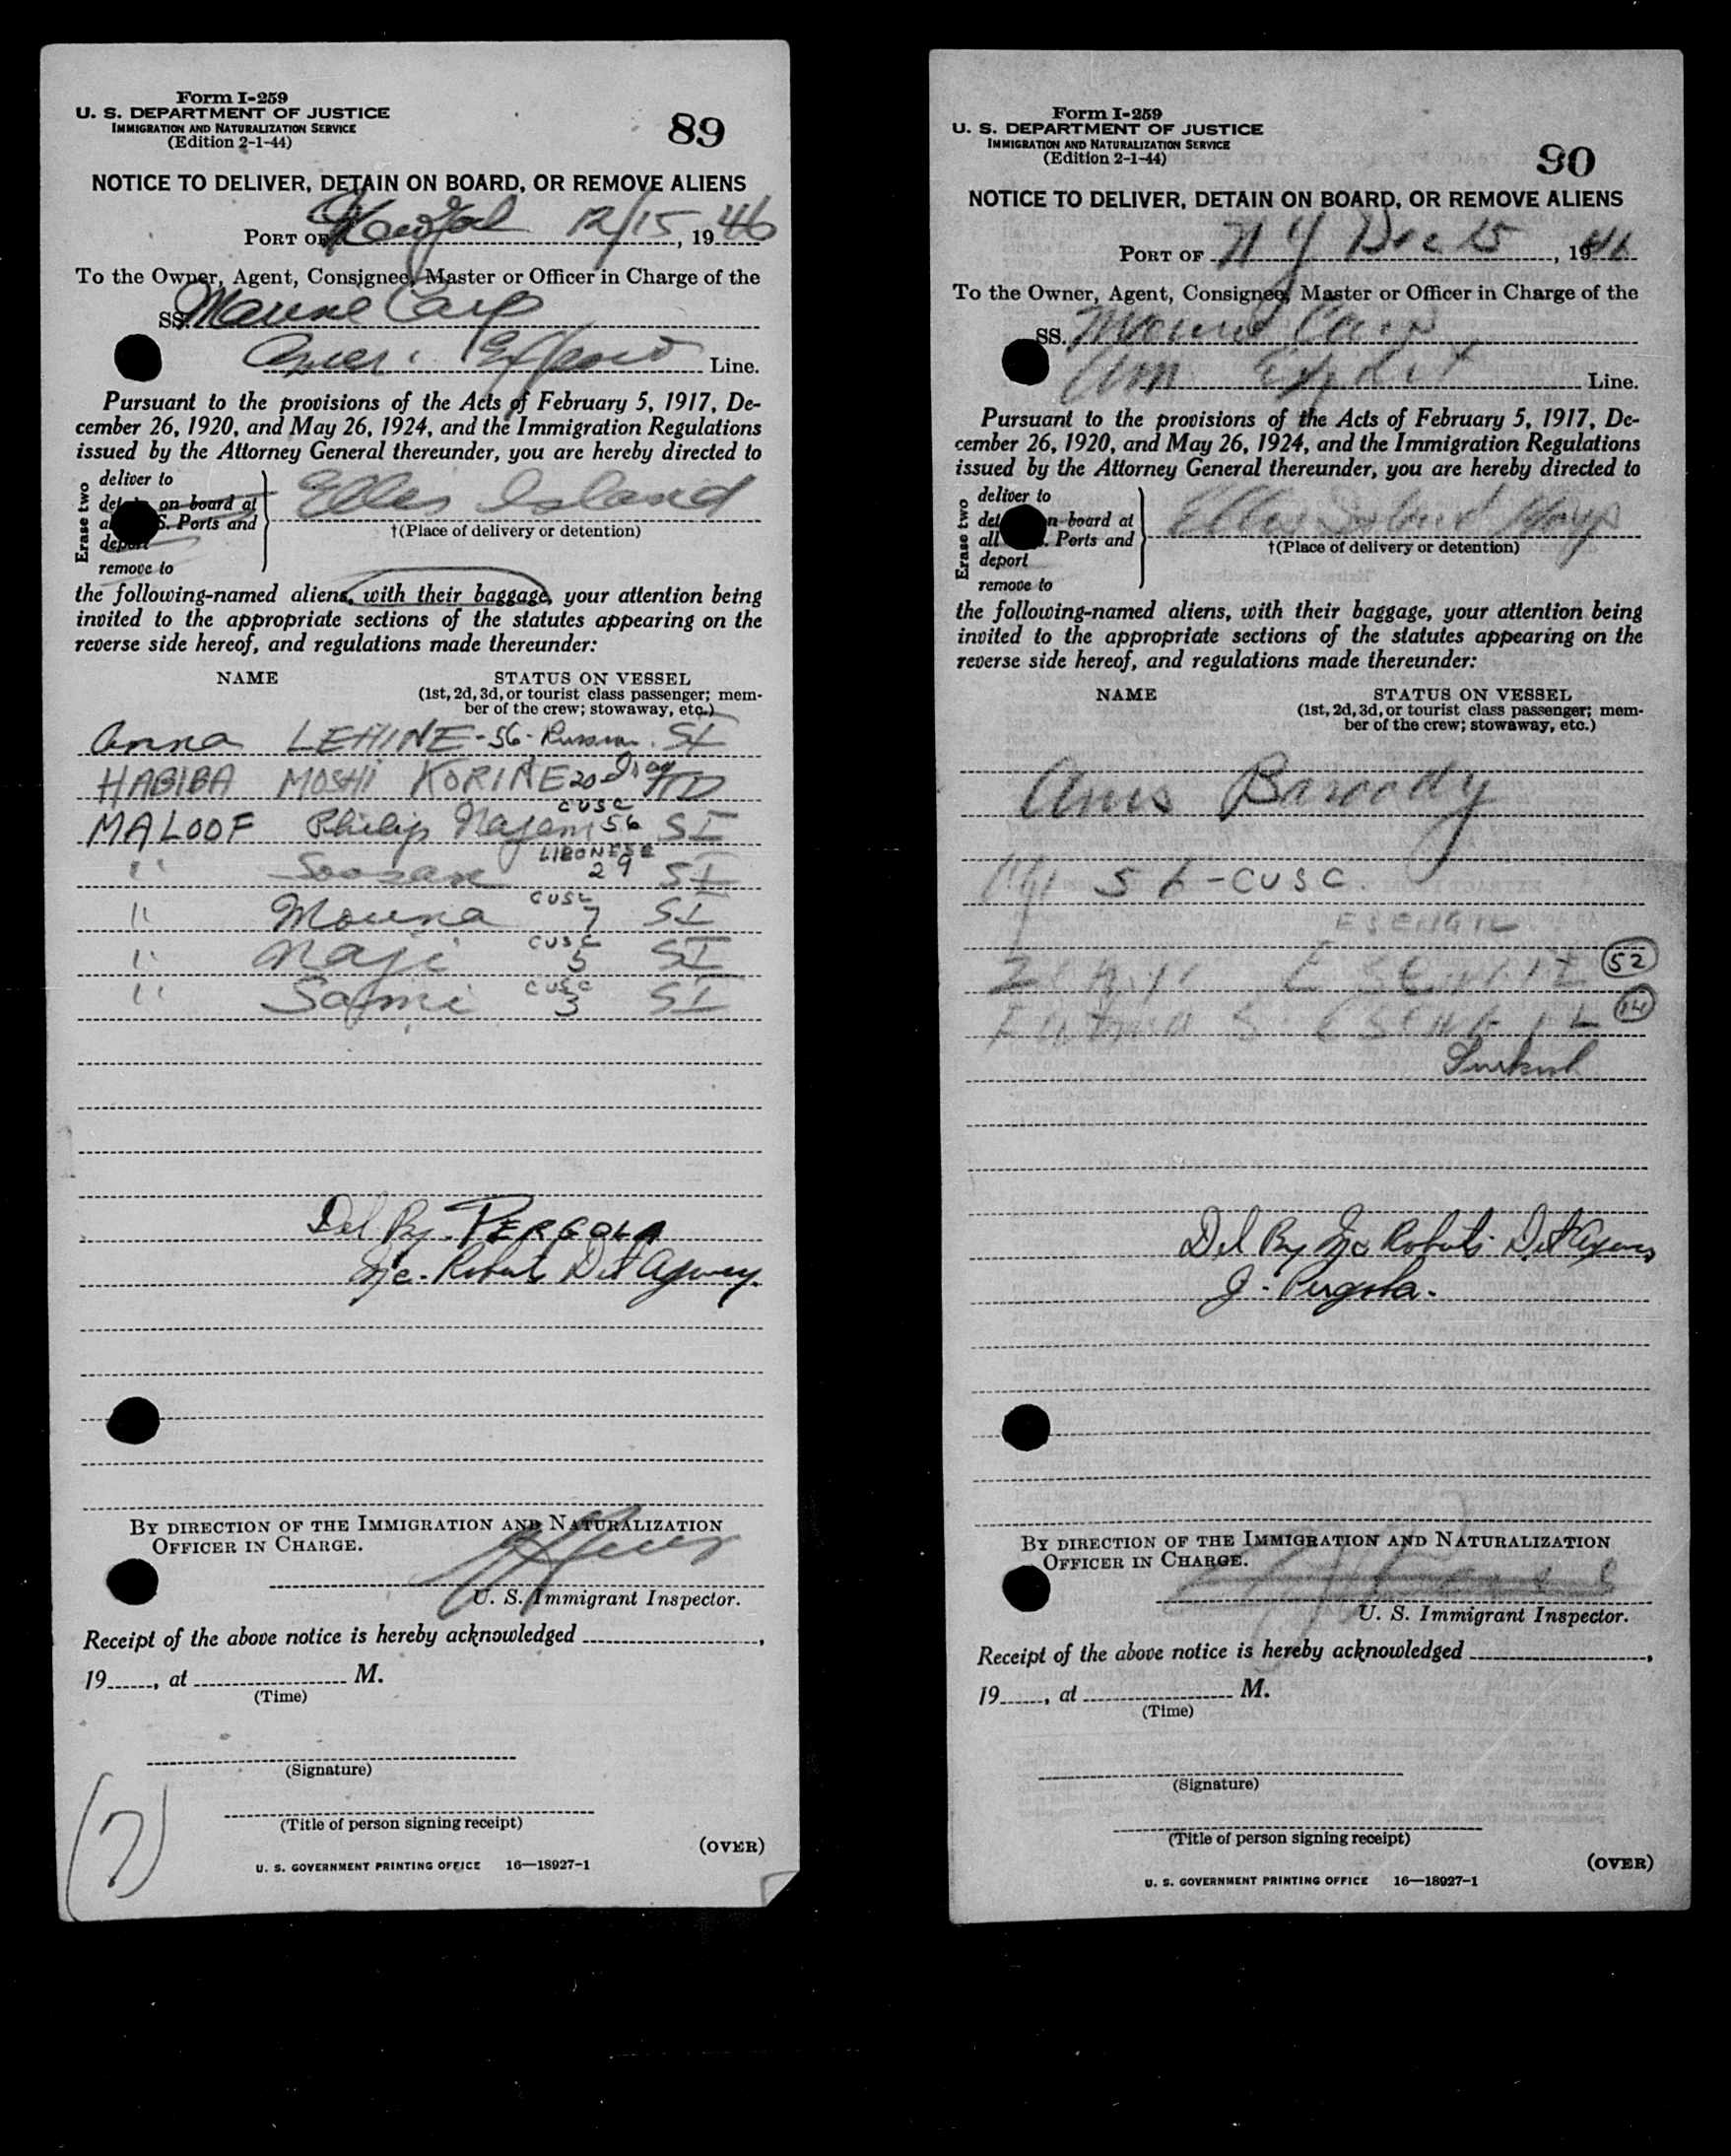 Form I-259
U. S. DEPARTMENT OF JUSTICE
IMMIGRATION AND NATURALIZATION SERVICE
(Edition 2-1-44)
89
NOTICE TO DELIVER, DETAIN ON BOARD, OR REMOVE ALIENS
PORT OF 12/15, 1946
To the Owner, Agent, Consignee, Master or Officer in Charge of the
SS. Marine Carp
Line.
Pursuant to the provisions of the Acts of February 5, 1917, De-
cember 26, 1920, and May 26, 1924, and the Immigration Regulations
issued by the Attorney General thereunder, you are hereby directed to
Erase two
deliver to
on board at
S. Ports and
deport
remove to
Ellis Island
†(Place of delivery or detention)
the following-named aliens, with their baggage, your attention being
invited to the appropriate sections of the statutes appearing on the
reverse side hereof, and regulations made thereunder:
NAME STATUS ON VESSEL
(1st, 2d, 3d, or tourist class passenger; mem-
ber of the crew; stowaway, etc.)
Anna LEHINE - 56 - Russian SI
HABIBA MOSHI KORINE 20 Iraq TD
CUSC
MALOOF Philip Najem 56 SI
LIBONESE
" 29 SI
CUSC
" Mouna 7 SI
CUSC
" Naji 5 SI
CUSC
" Sami 3 SI
Del By. PERGOLA
Det Agency.
BY DIRECTION OF THE IMMIGRATION AND NATURALIZATION
OFFICER IN CHARGE.
U. S. Immigrant Inspector.
Receipt of the above notice is hereby acknowledged
19, at M.
(Time)
(Signature)
(7)
(Title of person signing receipt)
(OVER)
U. S. GOVERNMENT PRINTING OFFICE 16—18927-1
Form I-259
U. S. DEPARTMENT OF JUSTICE
IMMIGRATION AND NATURALIZATION SERVICE
(Edition 2-1-44)
90
NOTICE TO DELIVER, DETAIN ON BOARD, OR REMOVE ALIENS
PORT OF N Y Dec 15, 1946
To the Owner, Agent, Consignee, Master or Officer in Charge of the
SS. Marine Carp
Am Export Line.
Pursuant to the provisions of the Acts of February 5, 1917, De-
cember 26, 1920, and May 26, 1924, and the Immigration Regulations
issued by the Attorney General thereunder, you are hereby directed to
Erase two
deliver to
n board at
all . Ports and
deport
remove to
Ellis Island
†(Place of delivery or detention)
the following-named aliens, with their baggage, your attention being
invited to the appropriate sections of the statutes appearing on the
reverse side hereof, and regulations made thereunder:
NAME STATUS ON VESSEL
(1st, 2d, 3d, or tourist class passenger; mem-
ber of the crew; stowaway, etc.)
Anis Baroody
CUSC
52
14
Del By Det Agency
J. Pergola.
BY DIRECTION OF THE IMMIGRATION AND NATURALIZATION
OFFICER IN CHARGE.
U. S. Immigrant Inspector.
Receipt of the above notice is hereby acknowledged
19, at M.
(Time)
(Signature)
(Title of person signing receipt)
(OVER)
U. S. GOVERNMENT PRINTING OFFICE 16—18927-1